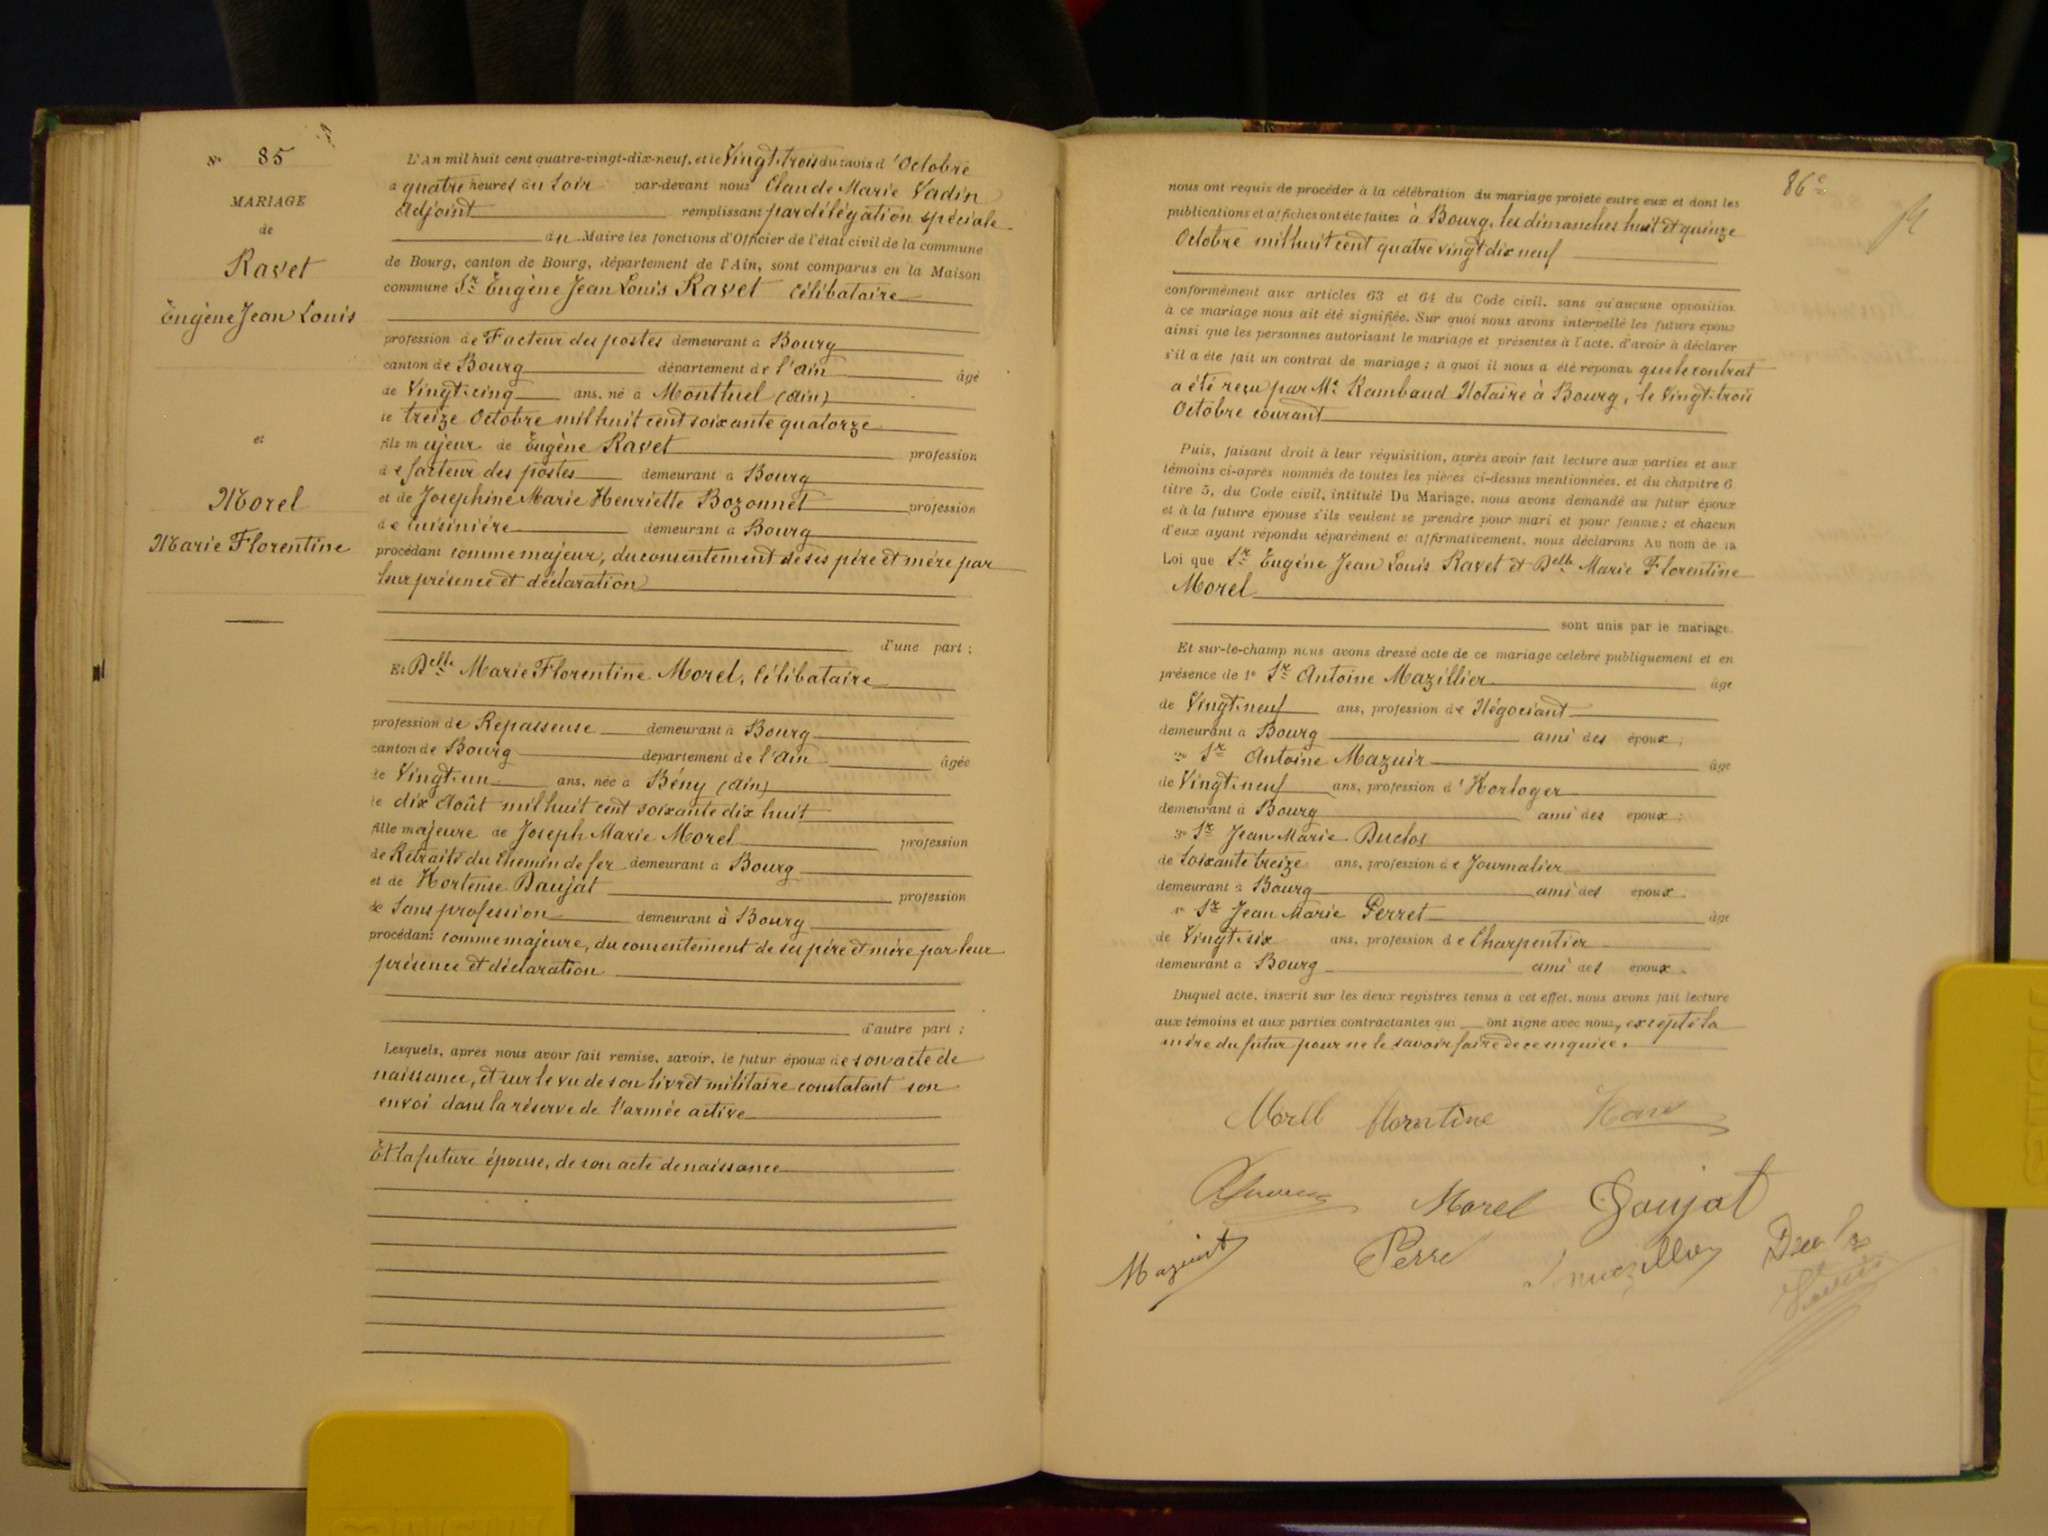 N° 85
MARIAGE
de
Ravet
Eugène Jean Louis
et
Morel
Marie Florentine
L'An mil huit cent quatre-vingt-dix-neuf, et le Vingt-trois du mois d'Octobre
à quatre heures du Soir par-devant nous Claude Marie Vadin
Adjoint remplissant par délégation spéciale
du Maire les fonctions d'Officier de l'état civil de la commune
de Bourg, canton de Bourg, département de l'Ain, sont comparus en la Maison
commune Sr Eugène Jean Louis Ravet Célibataire
profession de Facteur des postes demeurant à Bourg
canton de Bourg département de l'Ain âgé
de Vingt-cinq ans, né à Montluel (Ain)
le treize Octobre mil huit cent soixante quatorze
fils majeur de Eugène Ravet profession
de facteur des postes demeurant à Bourg
et de Joséphine Marie Henriette Bozonnet profession
de cuisinière demeurant à Bourg
procédant comme majeur, du consentement de ses père et mère par
leur présence et déclaration
d'une part ;
Et Delle Marie Florentine Morel, Célibataire
profession de Repasseuse demeurant à Bourg
canton de Bourg département de l'Ain âgée
de Vingt-un ans, née à Bény (Ain)
le dix Août mil huit cent soixante dix huit
fille majeure de Joseph Marie Morel profession
de Retraité du Chemin de fer demeurant à Bourg
et de Hortense Daujat profession
de Sans profession demeurant à Bourg
procédant comme majeure, du consentement de ses père et mère par leur
présence et déclaration
d'autre part ;
Lesquels, après nous avoir fait remise, savoir, le futur époux de son acte de
naissance, et sur le vu de son livret militaire constatant son
envoi dans la réserve de l'armée active
Et la future épouse, de son acte de naissance
86e
nous ont requis de procéder à la célébration du mariage projeté entre eux et dont les
publications et affiches ont été faites à Bourg, les dimanches huit et quinze
Octobre mil huit cent quatre vingt dix neuf
conformément aux articles 63 et 64 du Code civil, sans qu'aucune opposition
à ce mariage nous ait été signifiée. Sur quoi nous avons interpellé les futurs époux
ainsi que les personnes autorisant le mariage et présentes à l'acte, d'avoir à déclarer
s'il a été fait un contrat de mariage ; à quoi il nous a été répondu que le contrat
a été reçu par Me Rambaud Notaire à Bourg, le Vingt-trois
Octobre courant
Puis, faisant droit à leur réquisition, après avoir fait lecture aux parties et aux
témoins ci-après nommés de toutes les pièces ci-dessus mentionnées, et du chapitre 6
titre 5, du Code civil, intitulé Du Mariage, nous avons demandé au futur époux
et à la future épouse s'ils veulent se prendre pour mari et pour femme ; et chacun
d'eux ayant répondu séparément et affirmativement, nous déclarons Au nom de la
Loi que Sr Eugène Jean Louis Ravet et Delle Marie Florentine
Morel
sont unis par le mariage.
Et sur-le-champ nous avons dressé acte de ce mariage célébré publiquement et en
présence de 1° Sr Antoine Mazillier âgé
de Vingt-neuf ans, profession de Négociant
demeurant à Bourg ami des époux ;
2° Sr Antoine Mazuir âgé
de Vingt-neuf ans, profession d'Horloger
demeurant à Bourg ami des époux ;
3° Sr Jean Marie Duclos
de Soixante treize ans, profession de Journalier
demeurant à Bourg ami des époux
Sr Jean Marie Perret âgé
de Vingt-six ans, profession de Charpentier
demeurant à Bourg ami des époux.
Duquel acte, inscrit sur les deux registres tenus à cet effet, nous avons fait lecture
aux témoins et aux parties contractantes qui ont signé avec nous, excepté la
mère du futur pour ne le savoir faire de ce enquise.
Morel Florentine
Morel Daujat
Mazuir Perret